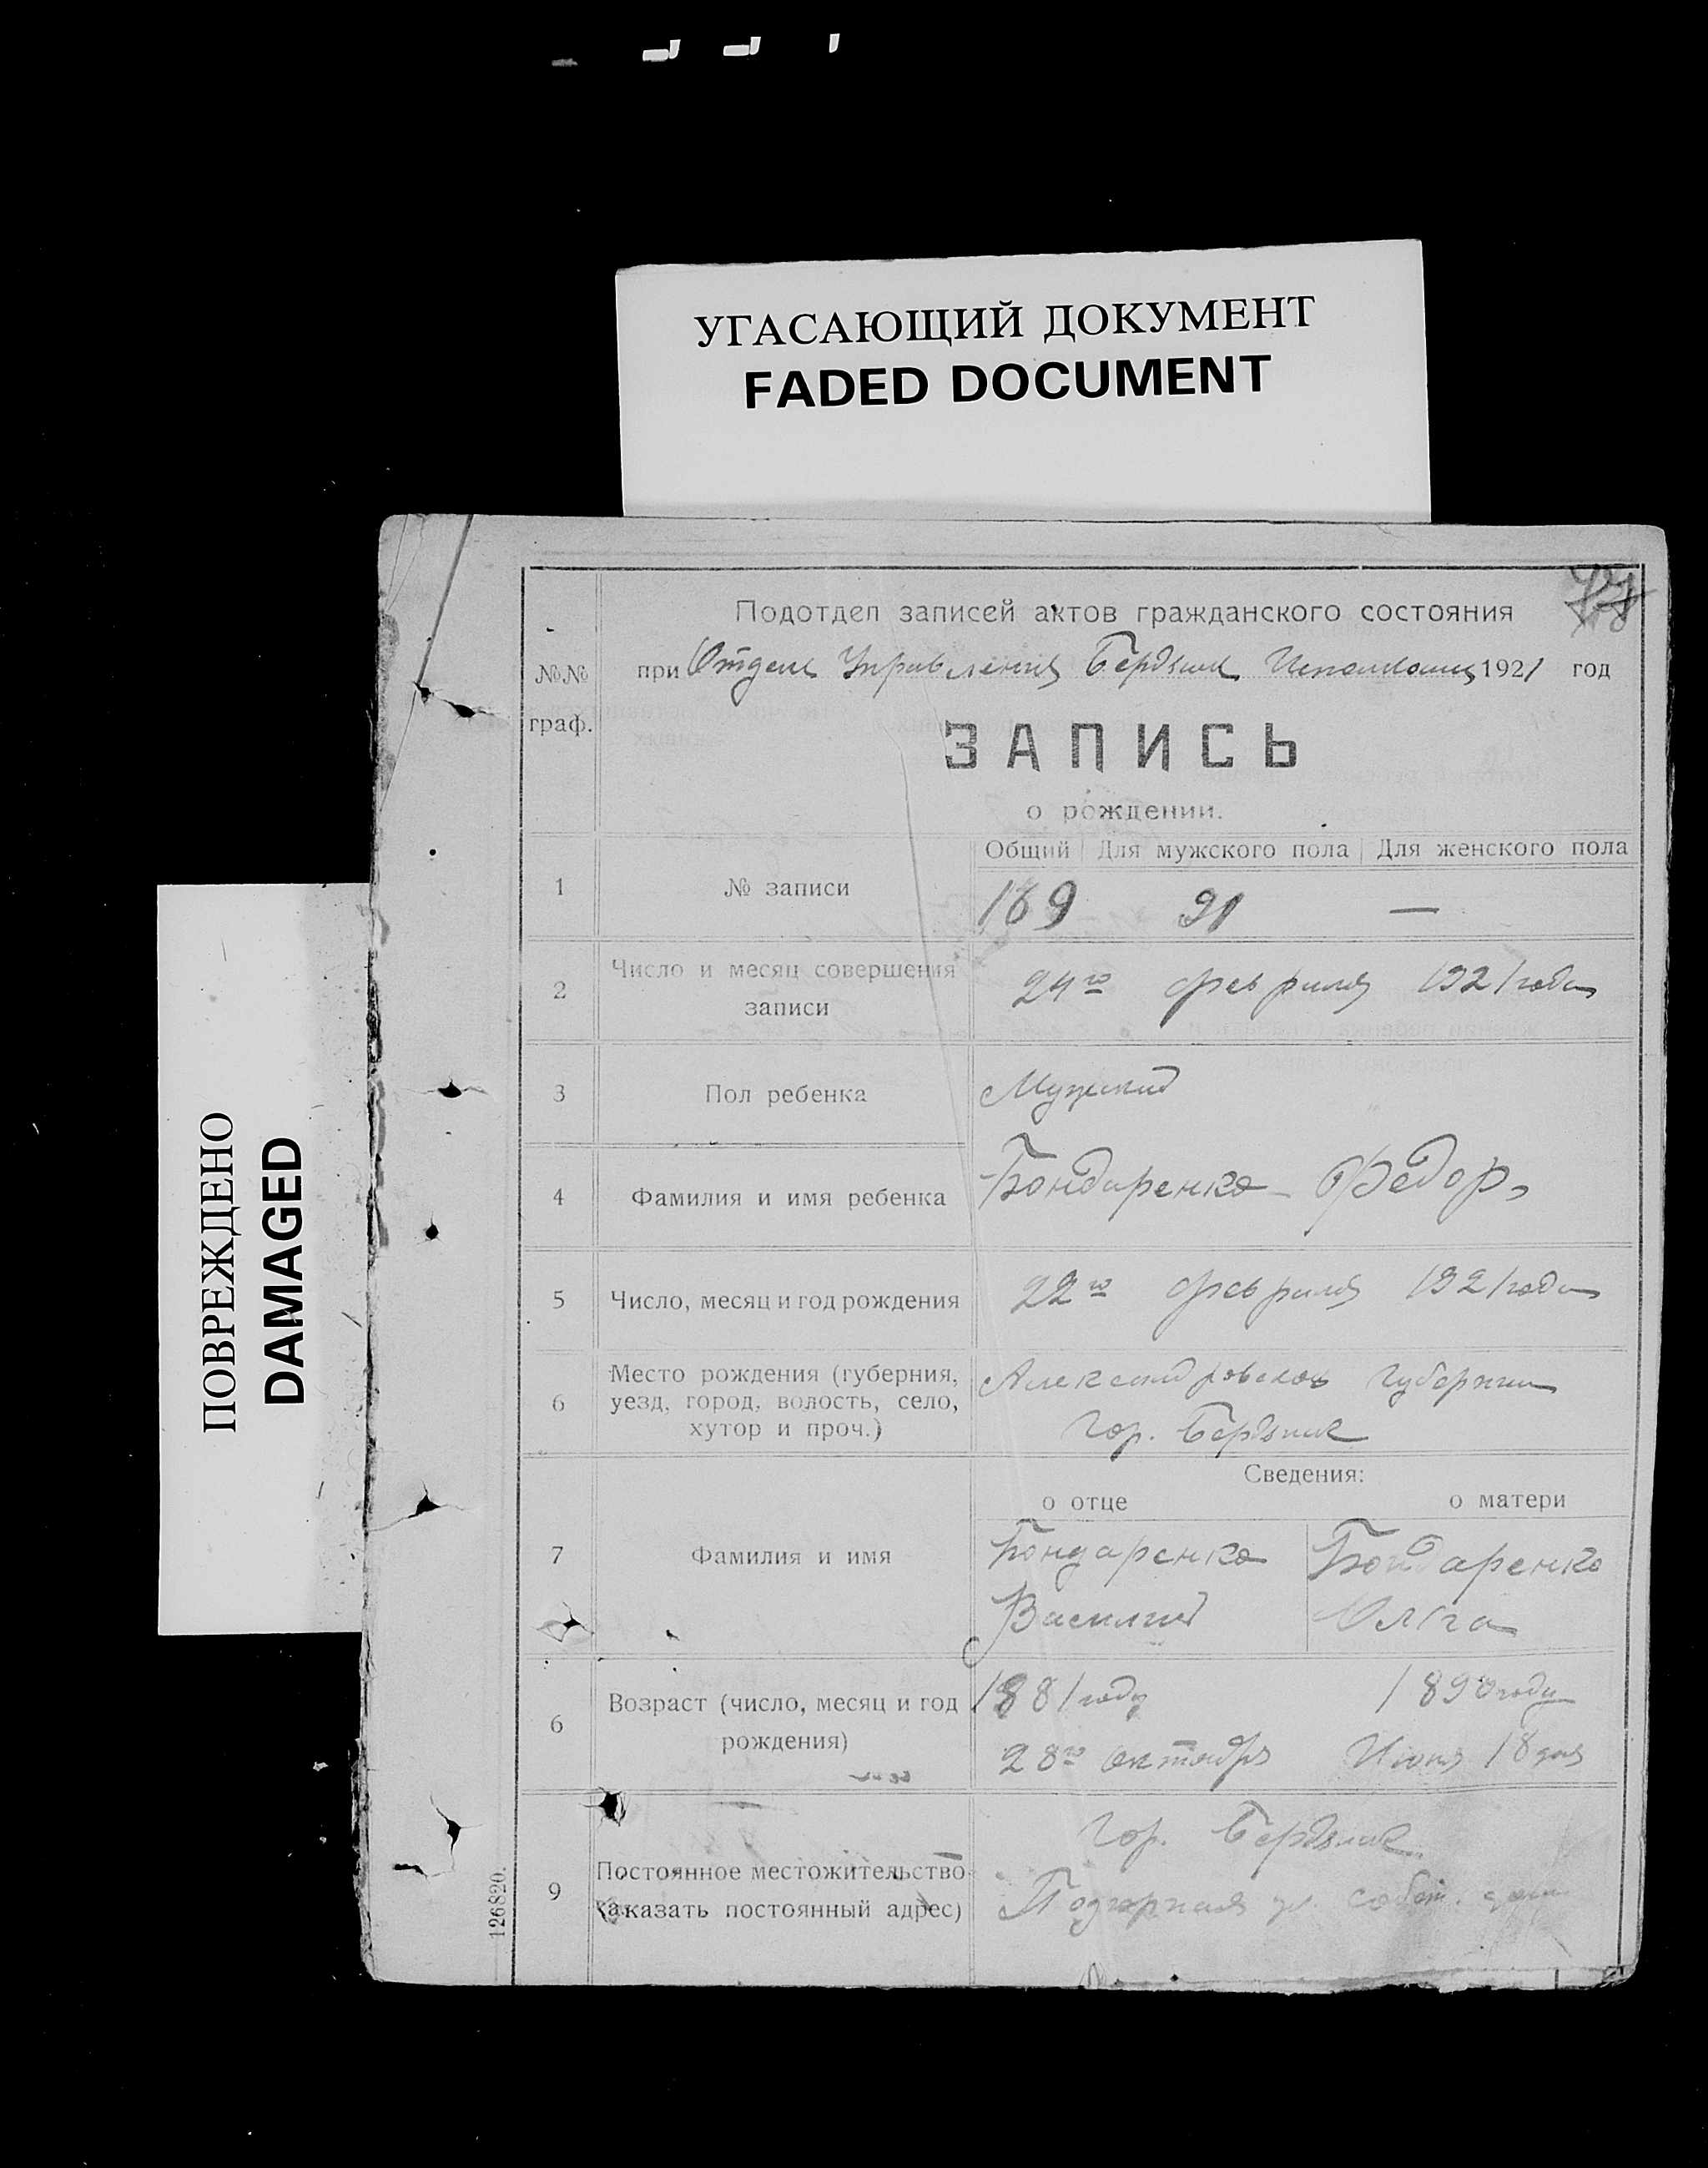 УГАСАЮЩИЙ ДОКУМЕНТ
FADED DOCUMENT
ПОВРЕЖДЕНО
DAMAGED
Подотдел записей актов гражданского состояния
№№ граф.
при Отделе Управления Бердянск. Исполкома 1921 год
ЗАПИСЬ
о рождении.
Общий Для мужского пола Для женского пола
1 № записи 169 91 —
2 Число и месяц совершения записи 24го февраля 1921 года
3 Пол ребенка Мужский
4 Фамилия и имя ребенка Бондаренко - Федор
5 Число, месяц и год рождения 22го февраля 1921 года
6 Место рождения (губерния, уезд, город, волость, село, хутор и проч.) Александровской губернии
гор. Бердянск
Сведения:
о отце о матери
7 Фамилия и имя Бондаренко Бондаренко
Василий Ольга
6 Возраст (число, месяц и год рождения) 1881 году 1890 году
28го октября Июня 18 дня
гор. Бердянск
9 Постоянное местожительство (указать постоянный адрес) Подгорная ул. собст. дом
126820.